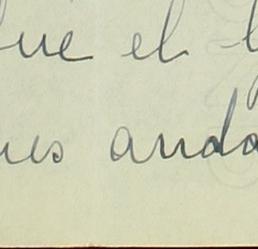 que el
ues anda